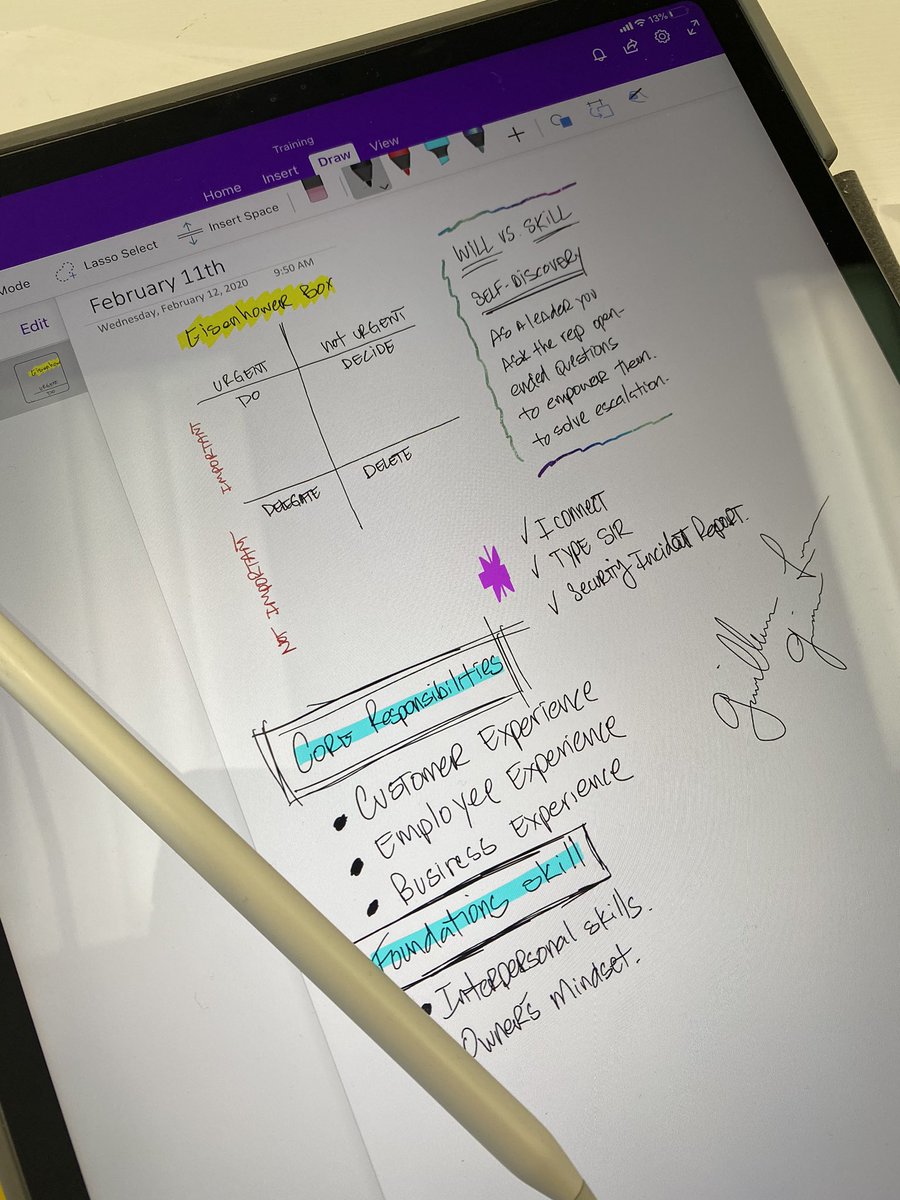 13%
Training
Home Insert Draw View
Mode Lasso Select Insert Space
Edit
February 11th
Wednesday, February 12, 2020 9:50 AM
Eisenhower Box
URGENT NOT URGENT
DO DECIDE
IMPORTANT
DELEGATE DELETE
NOT IMPORTANT
WILL VS. SKILL
SELF-DISCOVERY
As a leader you
Ask the rep open-
ended questions
to empower them.
to solve escalation.
✓ I connect
✓ TYPE SIR
✓ Security Incident Report.
Core Responsibilities
• Customer Experience
• Employee Experience
• Business Experience
Foundations skill
• Interpersonal skills.
Owner's mindset.